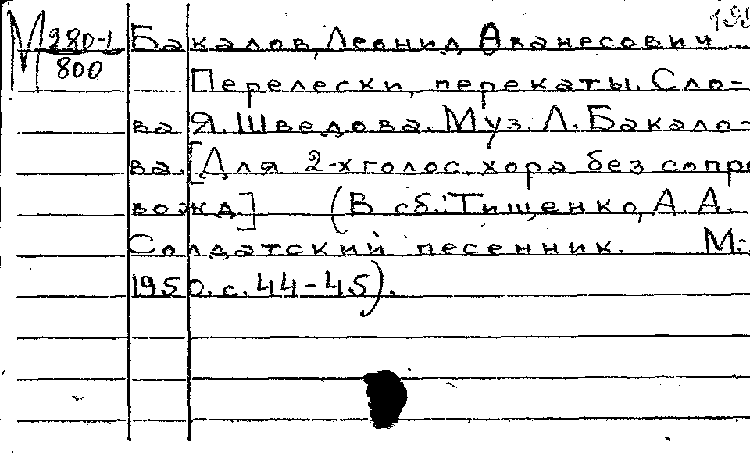 М 280-1/800
Бакалов, Леонид Аванесович
Перелески, перекаты. Сло-
ва Я. Шведова. Муз. Л. Бакало-
ва. [Для 2-х голос. хора без сопро
вожд.] (В сб.: Тищенко, А. А.
Солдатский песенник. М.,
1950. с. 44-45).